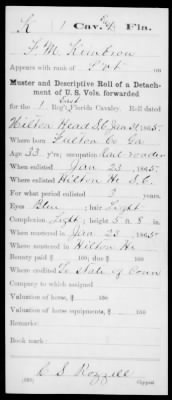 K 1 Cav. Fla.
F. M. Kimbrou
Appears with rank of Pvt on
Muster and Descriptive Roll of a Detach-
ment of U. S. Vols. forwarded
for the 1 East Reg't Florida Cavalry. Roll dated
Hilton Head S.C. Jan 31 1865.
Where born Fulton Co Ga
Age 33 y'rs; occupation Rail roader
When enlisted Jan 23, 1865
Where enlisted Hilton H S.C.
For what period enlisted 3 years.
Eyes Blue; hair Light
Complexion Light; height 5 ft. 8 in.
When mustered in Jan 23, 1865
Where mustered in Hilton H
Bounty paid $ 100; due $ 100
Where credited To State of Conn
Company to which assigned
Valuation of horse, $ 100
Valuation of horse equipments, $ 100
Remarks:
Book mark:
C S Rozzell
Copyist.